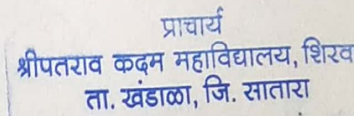 प्राचार्य
श्रीपतराव कदम महाविद्यालय, शिरव
ता. खंडाळा, जि. सातारा